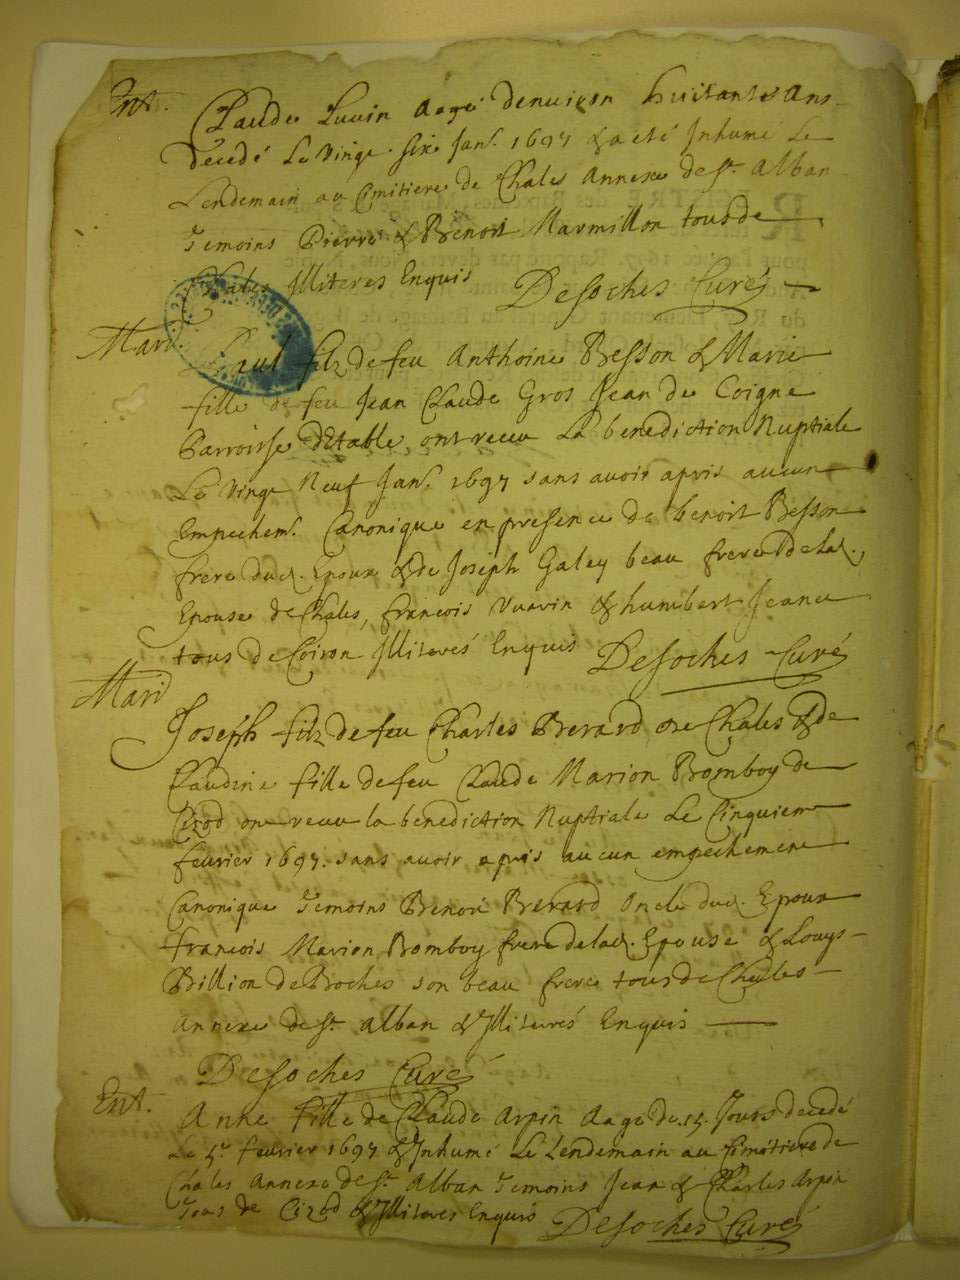 Ent.
Claude Luuin Aagé denuiron huictante Ans
Décedé Le vingt six Janr. 1697 & a eté Inhumé Le
Lendemain au Cimitiere de Chales Annexe de St. Alban
Temoins Pierre & Benoit Marmillon tous de
Chales Illiteres Enquis Desoches Curé
Mari.
Paul filz de feu Anthoine Besson & Marie
fille de feu Jean Claude Gros Jean de Coigne
Parroisse dEtable ont receu La benediction Nuptiale
Le vingt Neuf Janr. 1697 sans auoir apris aucun
Empechemt. Canonique en presence de benoit Besson
frere dud. Epoux & de Joseph Galey beau frere de lad.
Epouse de Chales, francois Vuarin & humbert Jeane
tous de Coiron Illiterés Enquis Desoches Curé
Mari
Joseph filz de feu Charles Berard de Chales & de
Claudine fille de feu Claude Marion Bomboy de
Cizod on receu la benediction Nuptiale Le Cinquiem
feurier 1697. sans auoir apris aucun empechement
Canonique Temoins Benoit Berard Oncle dud. Epoux
francois Marion Bomboy frere de lad. Epouse & Louys
Billion de Broches son beau frere tous de Chales
Annexe de St. Alban & Illiterés Enquis
Desoches Curé
Ent.
Anne fille de Claude Arpin Aagé de .15. Jours decedé
Le 5e. feurier 1697 & Inhumé Le Lendemain au Cimitiere de
Chales Annexe de St. Alban Temoins Jean & Charles Arpin
Tous de Cizod & Illiteres Enquis Desoches Curé